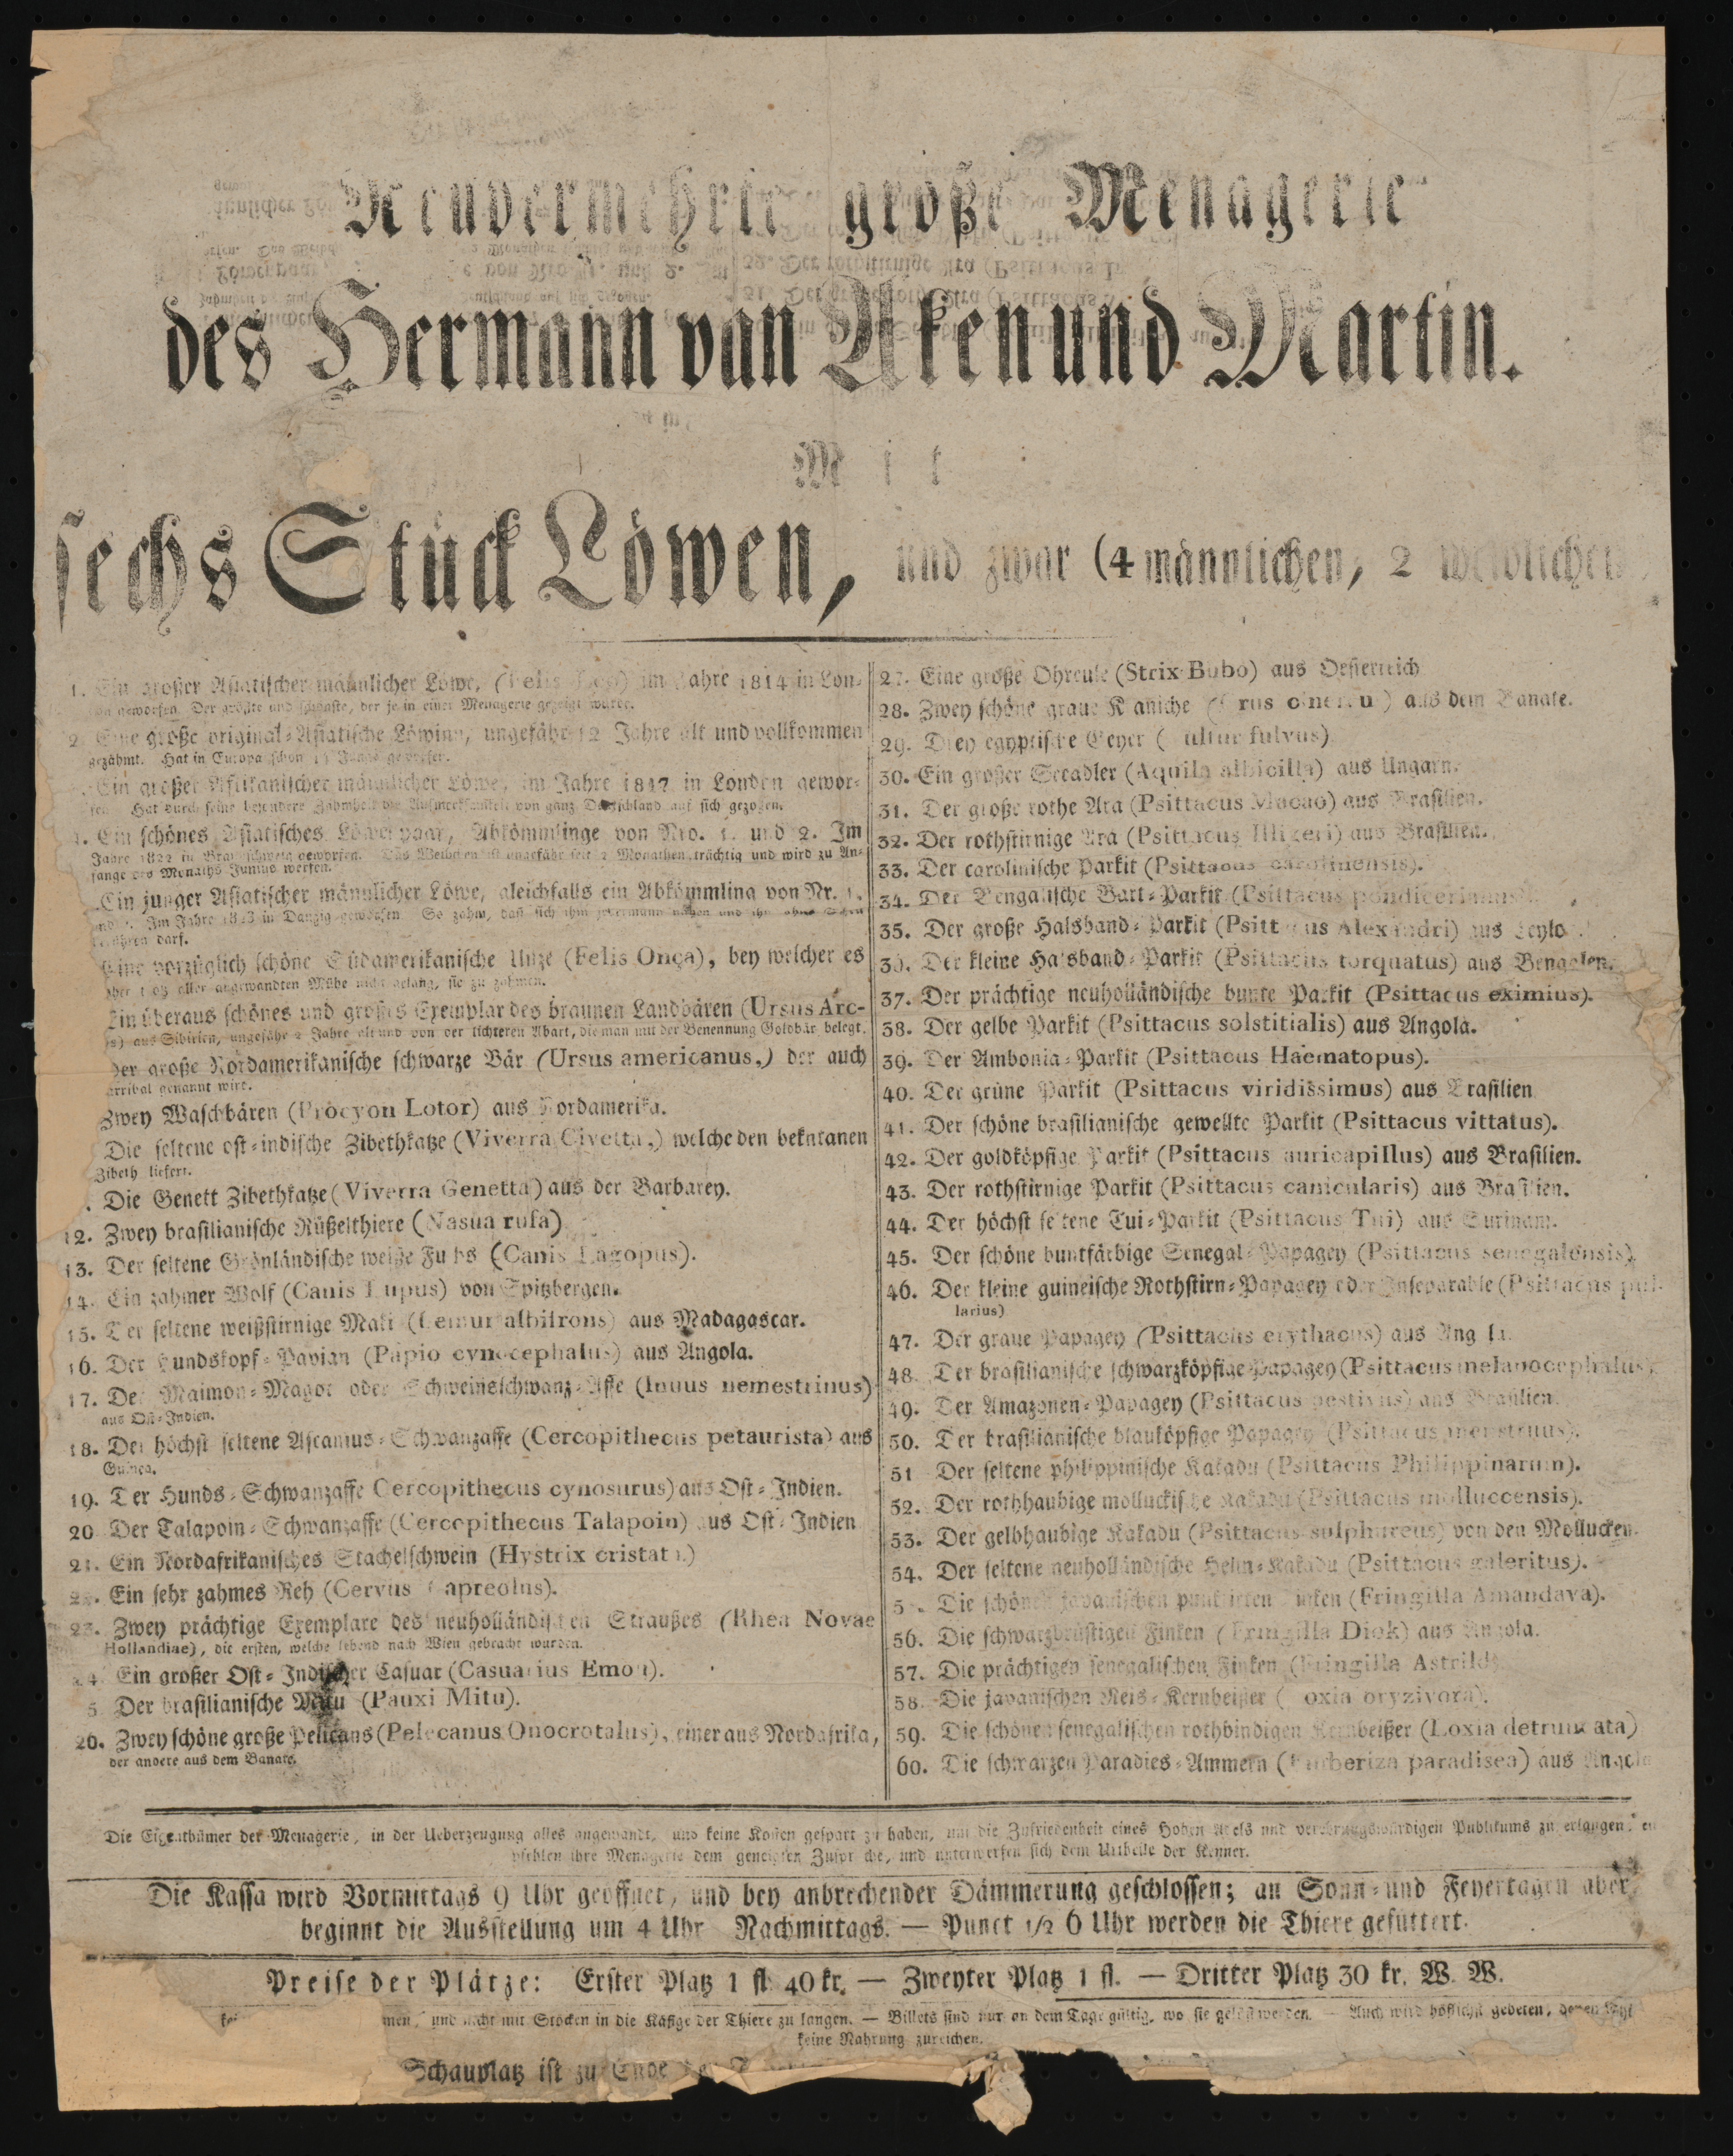 Neuvermehrte große Menagerie
des Hermann van Aken und Martin.
Mit
sechs Stück Löwen, und zwar (4 männlichen, 2 weiblichen
1. Ein großer Asiatischer männlicher Löwe, (Felis Leo) im Jahre 1814 in Lon-
don geworfen. Der größte und schönste, der je in einer Menagerie gezeigt wurde.
2. Eine große original-Asiatische Löwinn, ungefähr 12 Jahre alt und vollkommen
gezähmt. Hat in Europa schon Junge geworfen.
Ein großer Afrikanischer männlicher Löwe, im Jahre 1817 in London gewor-
fen. Hat durch seine besondere Zahmheit die Aufmerksamkeit von ganz Deutschland auf sich gezogen.
4. Ein schönes Asiatisches Löwenpaar, Abkömmlinge von Nro. 1. und 2. Im
Jahre 1822 in Braunschweig geworfen. Das Weibchen ist ungefähr seit 2 Monathen trächtig und wird zu An-
fange des Monaths Junius werfen.
Ein junger Asiatischer männlicher Löwe, gleichfalls ein Abkömmling von Nr. 1.
und 2. Im Jahre 1823 in Danzig geworfen. So zahm, daß sich ihm jedermann nahen und ihn ohne Scheu
berühren darf.
Eine vorzüglich schöne Südamerikanische Unze (Felis Onça), bey welcher es
aber trotz aller angewandten Mühe nicht gelang, sie zu zähmen.
Ein überaus schönes und großes Exemplar des braunen Landbären (Ursus Arc-
tos) aus Sibirien, ungefähr 2 Jahre alt und von der lichteren Abart, die man mit der Benennung Goldbär belegt.
Der große Nordamerikanische schwarze Bär (Ursus americanus,) der auch
genannt wird.
Zwey Waschbären (Procyon Lotor) aus Nordamerika.
Die seltene ost-indische Zibethkatze (Viverra Civetta,) welche den bekntanen
Zibeth liefert.
Die Genett Zibethkatze (Viverra Genetta) aus der Barbarey.
12. Zwey brasilianische Rüßelthiere (Nasua rufa)
13. Der seltene Grönländische weiße Fuchs (Canis Lagopus).
14. Ein zahmer Wolf (Canis Lupus) von Spitzbergen.
15. Der seltene weißstirnige Maki (Lemur albifrons) aus Madagascar.
16. Der Hundskopf-Pavian (Papio cynocephalus) aus Angola.
17. Der Maimon-Magot oder Schweinsschwanz-Affe (Inuus nemestrinus)
aus Ost-Indien.
18. Der höchst seltene Ascanius-Schwanzaffe (Cercopithecus petaurista) aus
Guinea.
19. Der Hunds-Schwanzaffe Cercopithecus cynosurus) aus Ost-Indien.
20 Der Talapoin-Schwanzaffe (Cercopithecus Talapoin) aus Ost-Indien
21. Ein Nordafrikanisches Stachelschwein (Hystrix cristata)
22. Ein sehr zahmes Reh (Cervus Capreolus).
23. Zwey prächtige Exemplare des neuholländischen Straußes (Rhea Novae
Hollandiae), die ersten, welche lebend nach Wien gebracht wurden.
24 Ein großer Ost-Indischer Casuar (Casuarius Emou).
5 Der brasilianische Mitu (Pauxi Mitu).
26. Zwey schöne große Pelicans (Pelecanus Onocrotalus), einer aus Nordafrika,
der andere aus dem Banate.
27. Eine große Ohreule (Strix Bubo) aus Oesterreich
28. Zwey schöne graue Kraniche (Grus cinereus) aus dem Banate.
29. Drey egyptische Geyer (Vultur fulvus)
30. Ein großer Seeadler (Aquila albicilla) aus Ungarn.
31. Der große rothe Ara (Psittacus Macao) aus Brasilien.
32. Der rothstirnige Ara (Psittacus Illigeri) aus Brasilien.
33. Der carolinische Parkit (Psittacus carolinensis).
34. Der Bengalische Bart-Parkit (Psittacus pondicerianus).
35. Der große Halsband-Parkit (Psittacus Alexandri) aus Ceylon
36. Der kleine Halsband-Parkit (Psittacus torquatus) aus Bengalen.
37. Der prächtige neuholländische bunte Parkit (Psittacus eximius).
38. Der gelbe Parkit (Psittacus solstitialis) aus Angola.
39. Der Ambonia-Parkit (Psittacus Haematopus).
40. Der grüne Parkit (Psittacus viridissimus) aus Brasilien
41. Der schöne brasilianische gewellte Parkit (Psittacus vittatus).
42. Der goldköpfige Parkit (Psittacus auricapillus) aus Brasilien.
43. Der rothstirnige Parkit (Psittacus canicularis) aus Brasilien.
44. Der höchst seltene Tui-Parkit (Psittacus Tui) aus Surinam.
45. Der schöne buntfärbige Senegal-Papagey (Psittacus senegalensis).
46. Der kleine guineische Rothstirn-Papagey oder Inseparable (Psittacus pul-
larius)
47. Der graue Papagey (Psittacus erythacus) aus Angola.
48 Der brasilianische schwarzköpfige Papagey (Psittacus melanocephalus)
49. Der Amazonen-Papagey (Psittacus aestivus) aus Brasilien.
50. Der brasilianische blauköpfige Papagey (Psittacus menstruus).
51 Der seltene philippinische Kakadu (Psittacus Philippinarum).
52. Der rothhaubige molluckische Kakadu (Psittacus molluccensis).
53. Der gelbhaubige Kakadu (Psittacus sulphureus) von den Mollucken.
54. Der seltene neuholländische Helm-Kakadu (Psittacus galeritus).
5 . Die schönen javanischen punktirten Finken (Fringilla Amandava).
56. Die schwarzbrüstigen Finken (Fringilla Diok) aus Angola.
57. Die prächtigen senegalischen Finken (Fringilla Astrild)
58. Die javanischen Reis-Kernbeißer (Loxia oryzivora).
59. Die schönen senegalischen rothbindigen Kernbeißer (Loxia detruncata)
60. Die schwarzen Paradies-Ammern (Emberiza paradisea) aus Angola
Die Eigenthümer der Menagerie, in der Ueberzeugung alles angewandt, und keine Kosten gespart zu haben, um die Zufriedenheit eines Hohen Adels und verehrungswürdigen Publikums zu erlangen, em
pfehlen ihre Menagerie dem geneigten Zuspruche, und unterwerfen sich dem Urtheile der Kenner.
Die Kassa wird Vormittags 9 Uhr geöffnet, und bey anbrechender Dämmerung geschlossen; an Sonn- und Feyertagen aber
beginnt die Ausstellung um 4 Uhr Nachmittags. — Punct 1/2 6 Uhr werden die Thiere gefüttert.
Preise der Plätze: Erster Platz 1 fl. 40 kr. — Zweyter Platz 1 fl. — Dritter Platz 30 kr. W. W.
men, und nicht mit Stöcken in die Käfige der Thiere zu langen. — Billets sind nur an dem Tage gültig, wo sie gelöst werden. — Auch wird höflichst gebeten, denen
keine Nahrung zureichen.
Schauplatz ist zu Ende der